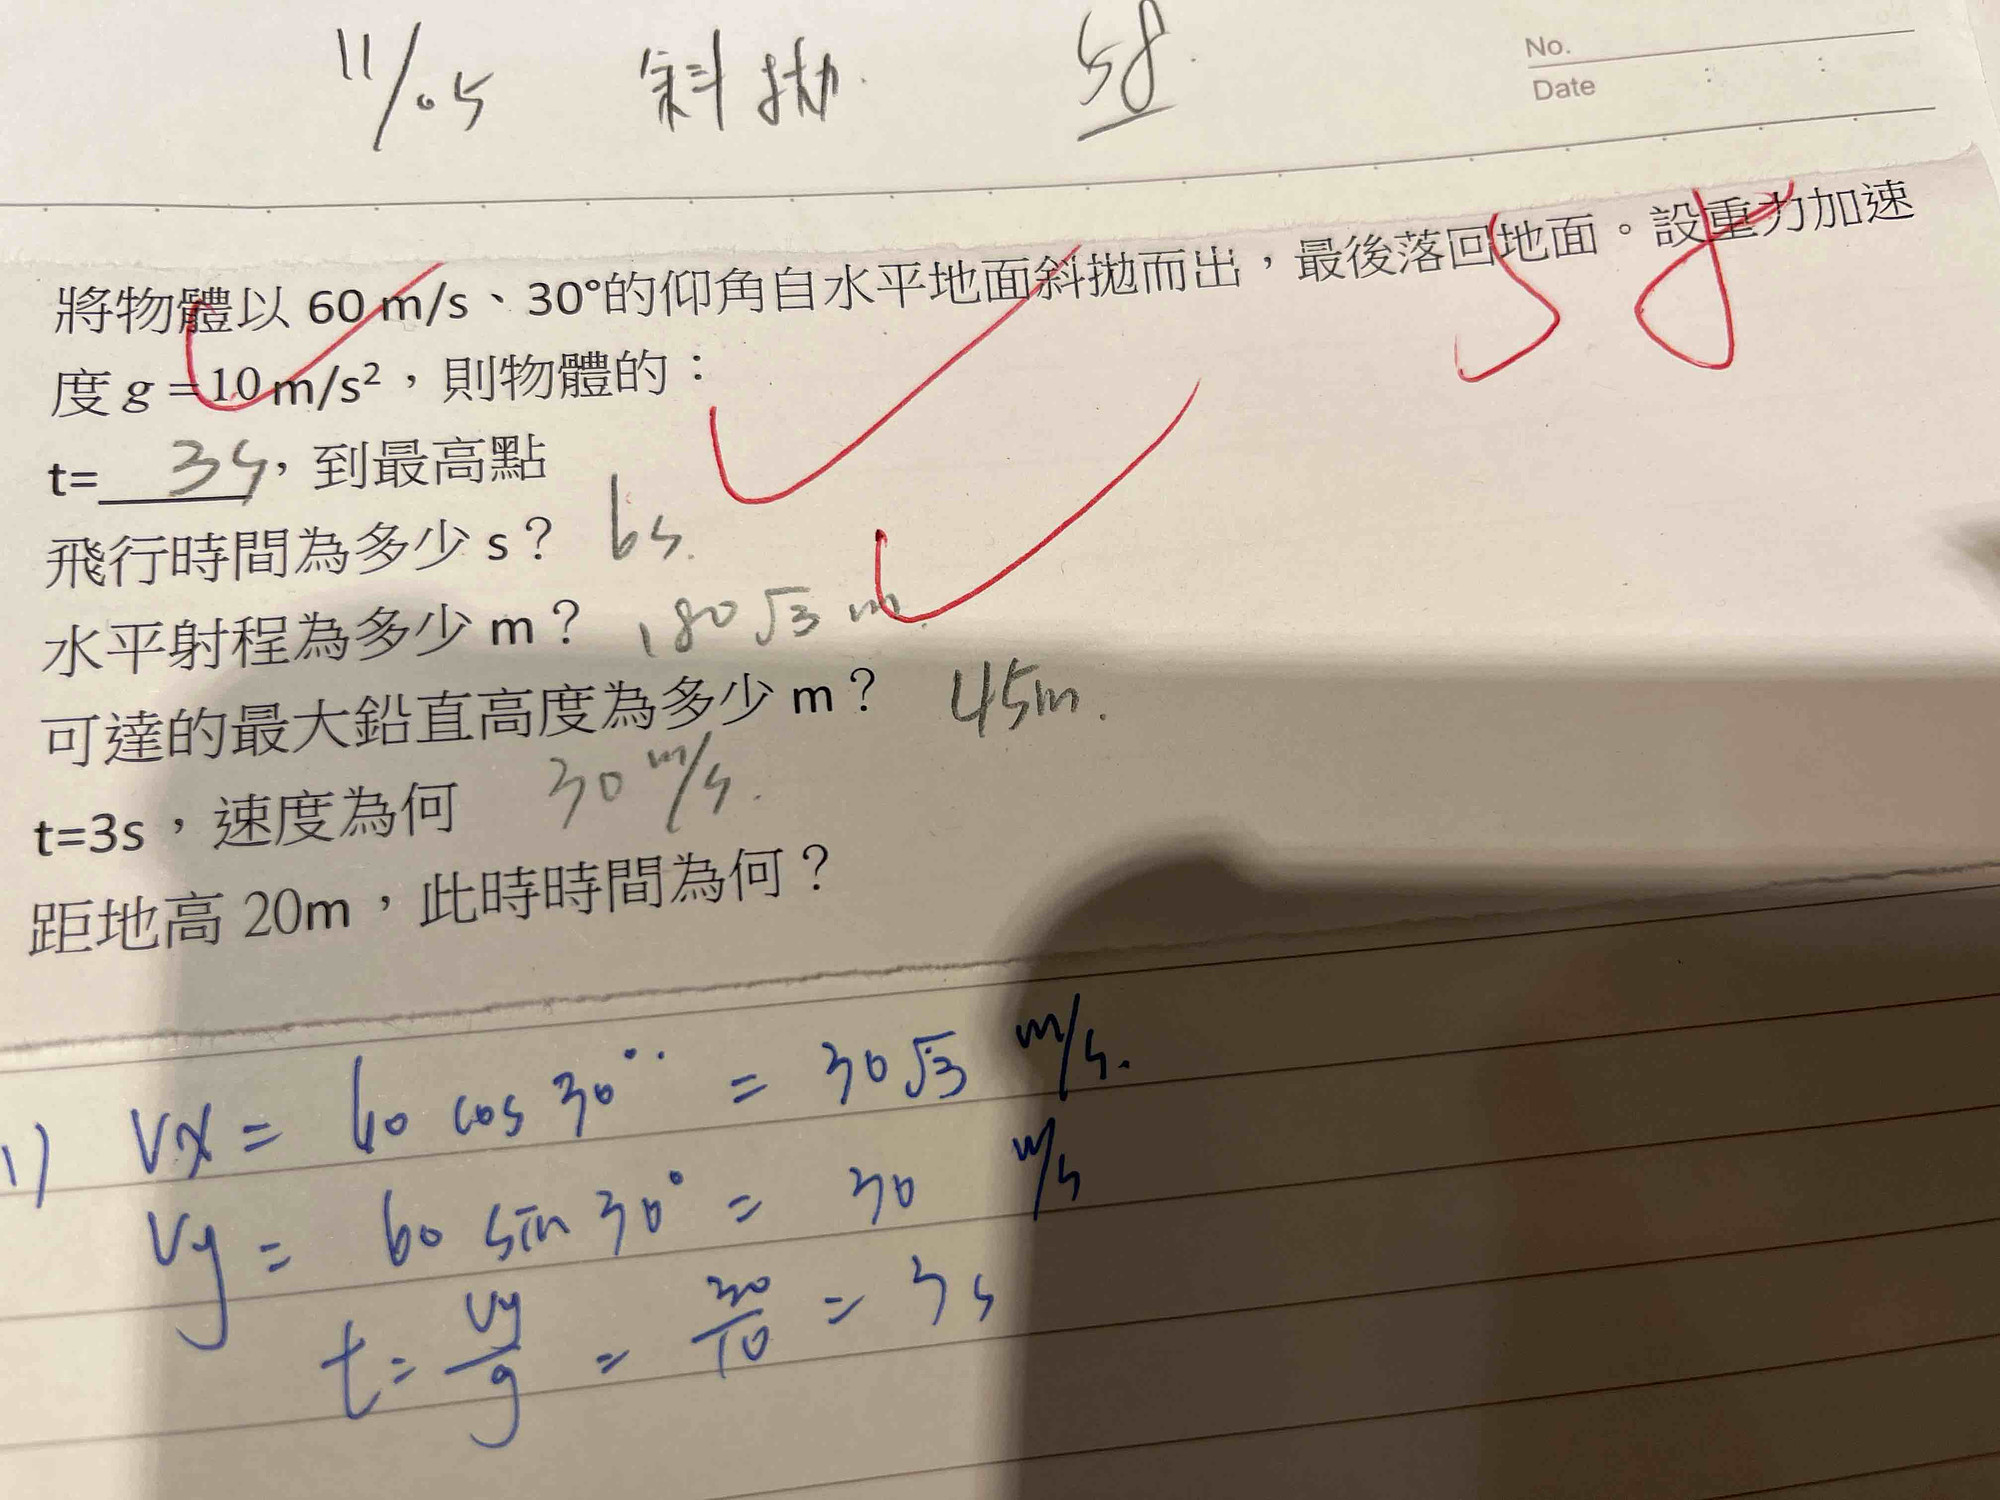 11/05 斜拋 58.
No.
Date : :
58
將物體以 60 m/s、30°的仰角自水平地面斜拋而出，最後落回地面。設重力加速
度 g =10 m/s²，則物體的：
t= 3s，到最高點
飛行時間為多少 s？ 6s.
水平射程為多少 m？ 180√3 m.
可達的最大鉛直高度為多少 m？ 45m.
t=3s，速度為何 30 m/s.
距地高 20m，此時時間為何？
1) Vx = 60 cos 30° = 30√3 m/s.
Vy = 60 sin 30° = 30 m/s
t = Vy/g = 30/10 = 3s